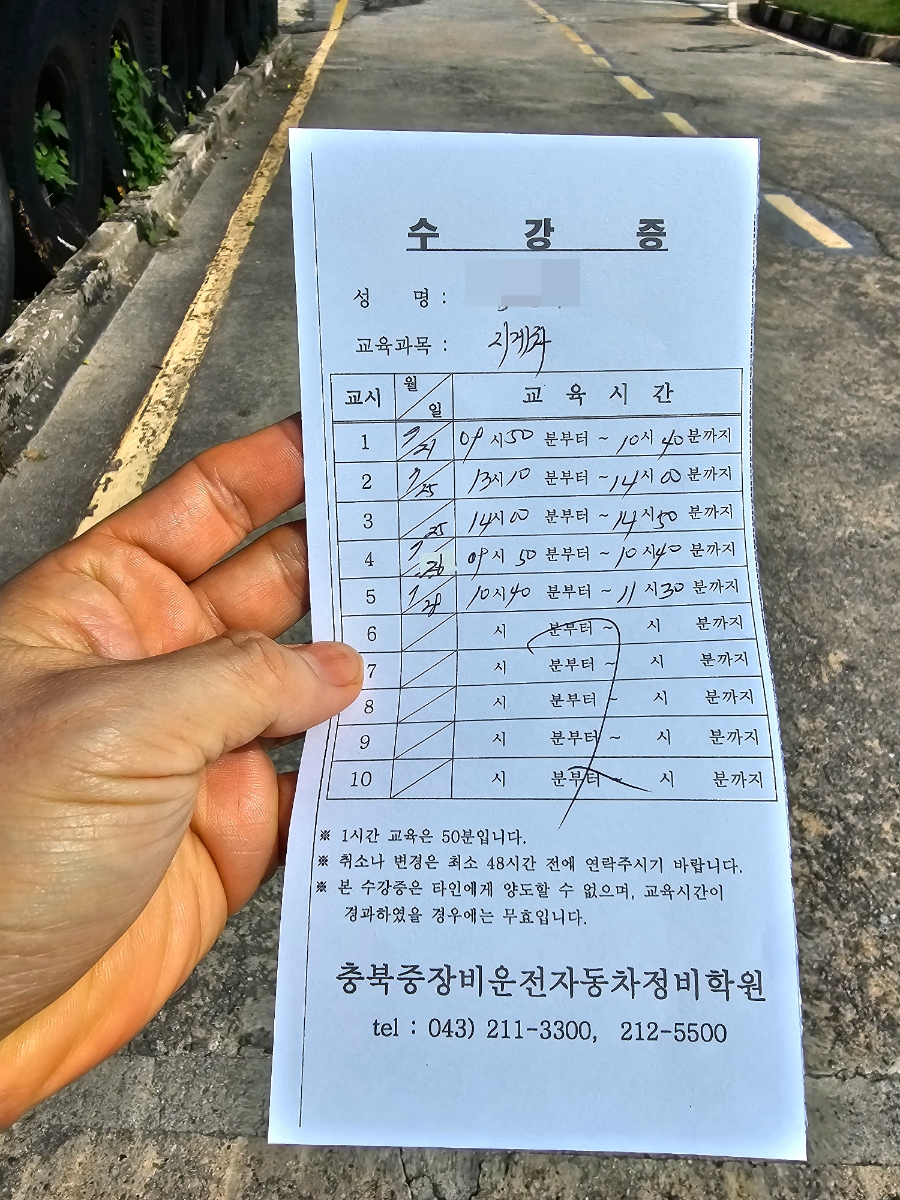 수 강 증
성 명 :
교육과목 : 지게차
교시 월 일 교 육 시 간
1 9/21 09시 50분부터 ~ 10시 40분까지
2 9/25 13시 10분부터 ~ 14시 00분까지
3 25 14시 00분부터 ~ 14시 50분까지
4 9/26 09시 50분부터 ~ 10시 40분까지
5 9/28 10시 40분부터 ~ 11시 30분까지
6 시 분부터 ~ 시 분까지
7 시 분부터 ~ 시 분까지
8 시 분부터 ~ 시 분까지
9 시 분부터 ~ 시 분까지
10 시 분부터 ~ 시 분까지
※ 1시간 교육은 50분입니다.
※ 취소나 변경은 최소 48시간 전에 연락주시기 바랍니다.
※ 본 수강증은 타인에게 양도할 수 없으며, 교육시간이
경과하였을 경우에는 무효입니다.
충북중장비운전자동차정비학원
tel : 043) 211-3300, 212-5500